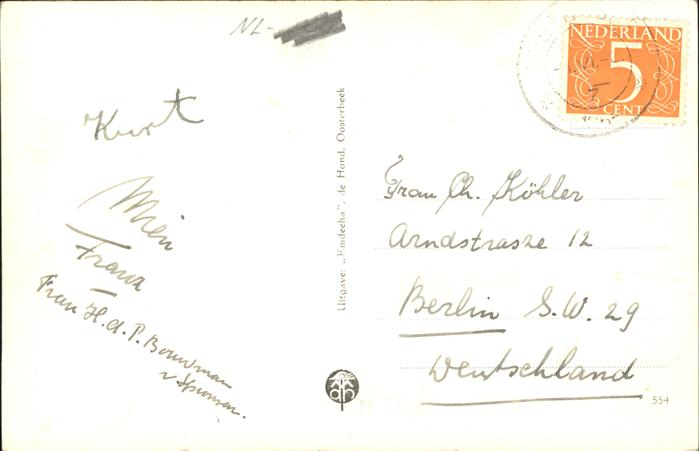 NL-
NEDERLAND
5
CENT
Kurt
Wien
Franz
Frau H. d. P. Bouwman
Uitgave: „Emdeeha", de Hond, Oosterbeek
Frau Ch. Köhler
Arndstrasze 12
Berlin S.W. 29
Deutschland
554